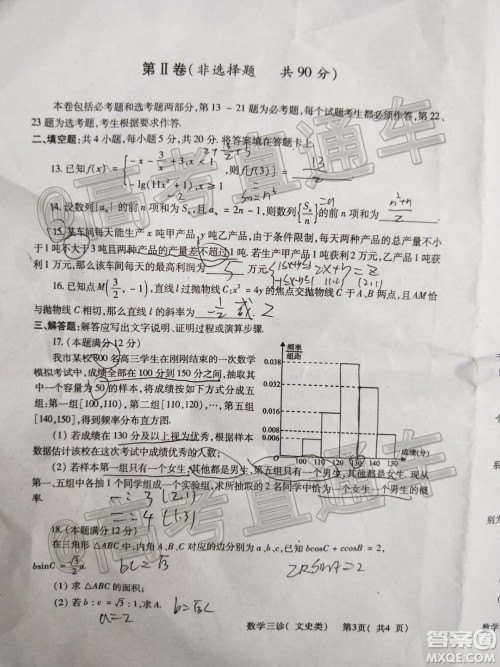 第Ⅱ卷(非选择题 共90分)
本卷包括必考题和选考题两部分,第13-21题为必考题,每个试题考生都必须作答,第22、
23题为选考题,考生根据要求作答.
二、填空题:共4小题,每小题5分,共20分.将答案填在答题卡上.
13.已知f(x)=
则f[f(3)]=
14.设数列{aₙ}的前n项和为Sₙ,且aₙ=2n-1,则数列{Sₙ/n}的前n项和为
15.某车间每天能生产x吨甲产品,y吨乙产品,由于条件限制,每天两种产品的总产量不小
于1吨不大于3吨且两种产品的产量差不超过1吨.若生产甲产品1吨获利2万元,乙产品1吨获利
1万元,那么该车间每天的最高利润为 5 万元
16.已知点M(3/2,-1),直线l过抛物线C:x²=4y的焦点交抛物线C于A,B两点,且AM恰
与抛物线C相切,那么直线l的斜率为
三、解答题:解答应写出文字说明,证明过程或演算步骤.
17.(本题满分12分)
我市某校800名高三学生在刚刚结束的一次数学
模拟考试中,成绩全部在100分到150分之间,抽取其
中一个容量为50的样本,将成绩按如下方式分成五
组:第一组[100,110),第二组[110,120),…,第五组
[140,150],得到频率分布直方图.
(1)若成绩在130分及以上视为优秀,根据样本
数据估计该校在这次考试中成绩优秀人数;
(2)若样本第一组只有一个女生,其他都是男生,第五组只有一个男生,其他都是女生.现从第
一、五组中各抽1个同学组成一个实验组,求所抽取的2名同学中恰为一个女生一个男生的概
率.
频率
组距
0.038
0.016
0.008
0.006
100 110 120 130 140 150 成绩(分)
18.(本题满分12分)
在三角形△ABC中,内角A,B,C对应的边分别为a,b,c,已知bcosC+ccosB=2,
bsinC=
(1)求△ABC的面积;
(2)若b:c=√3:1,求A.
b=√3c
a=2
数学三诊(文史类) 第3页(共4页)
高考直通车
答案圈
MXQE.COM